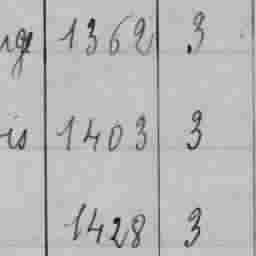 nge 1362 3
is 1403 3
1428 3